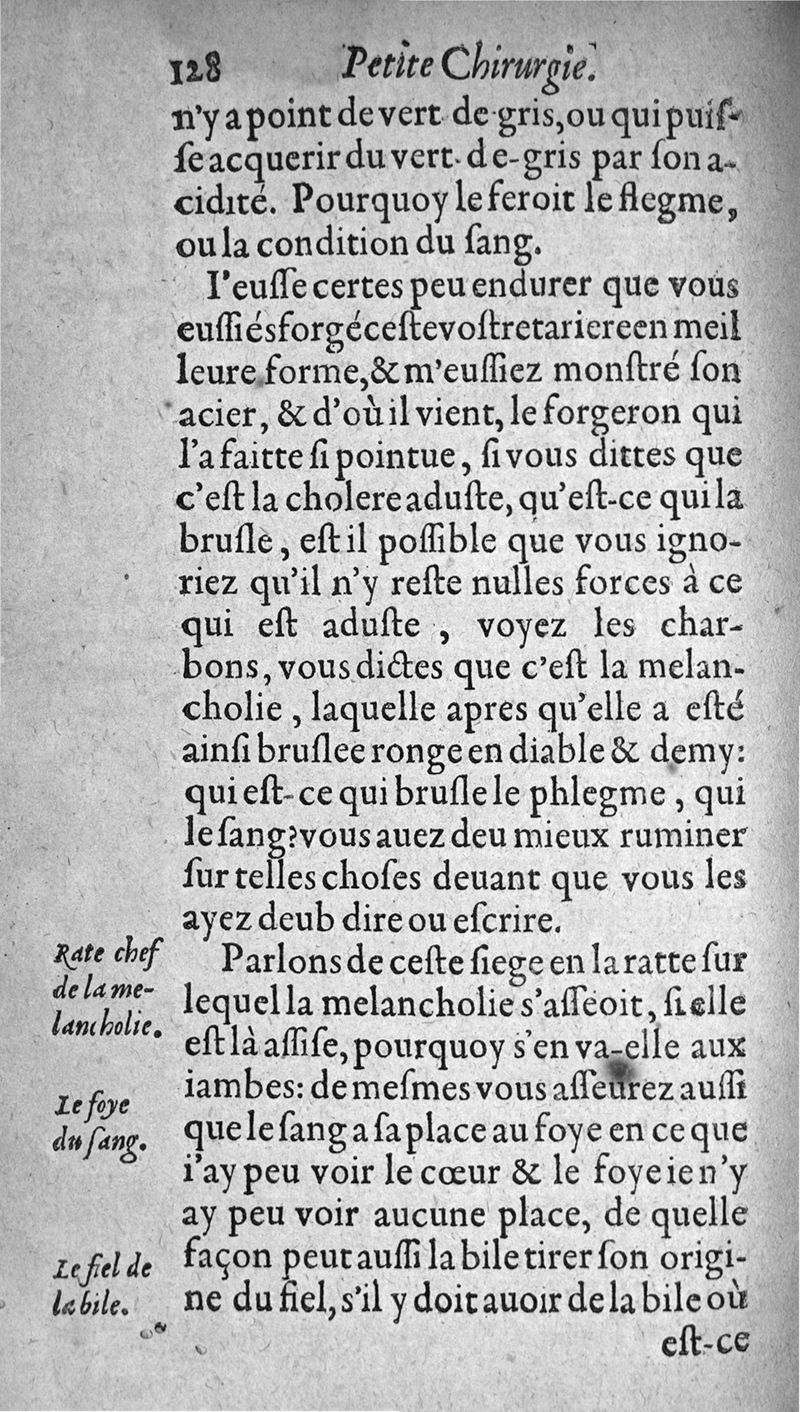 128 Petite Chirurgie.
n'y a point de vert de gris, ou qui puiſ-
ſe acquerir du vert-de-gris par ſon a-
cidité. Pourquoy le feroit le flegme,
ou la condition du ſang.
I'euſſe certes peu endurer que vous
euſſiés forgé ceſte voſtre tariere en meil
leure forme, & m'euſſiez monſtré ſon
acier, & d'où il vient, le forgeron qui
l'a faitte ſi pointue, ſi vous dittes que
c'eſt la cholere aduſte, qu'eſt-ce qui la
bruſle, eſt il poſſible que vous igno-
riez qu'il n'y reſte nulles forces à ce
qui eſt aduſte, voyez les char-
bons, vous dictes que c'eſt la melan-
cholie, laquelle apres qu'elle a eſté
ainſi bruſlee ronge en diable & demy:
qui eſt-ce qui bruſle le phlegme, qui
le ſang? vous auez deu mieux ruminer
ſur telles choſes deuant que vous les
ayez deub dire ou eſcrire.
Rate chef
de la me-
lancholie.
Parlons de ceſte ſiege en la ratte ſur
lequel la melancholie s'aſſeoit, ſi elle
eſt là aſſiſe, pourquoy s'en va-elle aux
iambes: de meſmes vous aſſeurez auſſi
Le foye
du ſang.
que le ſang a ſa place au foye en ce que
i'ay peu voir le cœur & le foye ie n'y
ay peu voir aucune place, de quelle
Le fiel de
la bile.
façon peut auſſi la bile tirer ſon origi-
ne du fiel, s'il y doit auoir de la bile où
eſt-ce